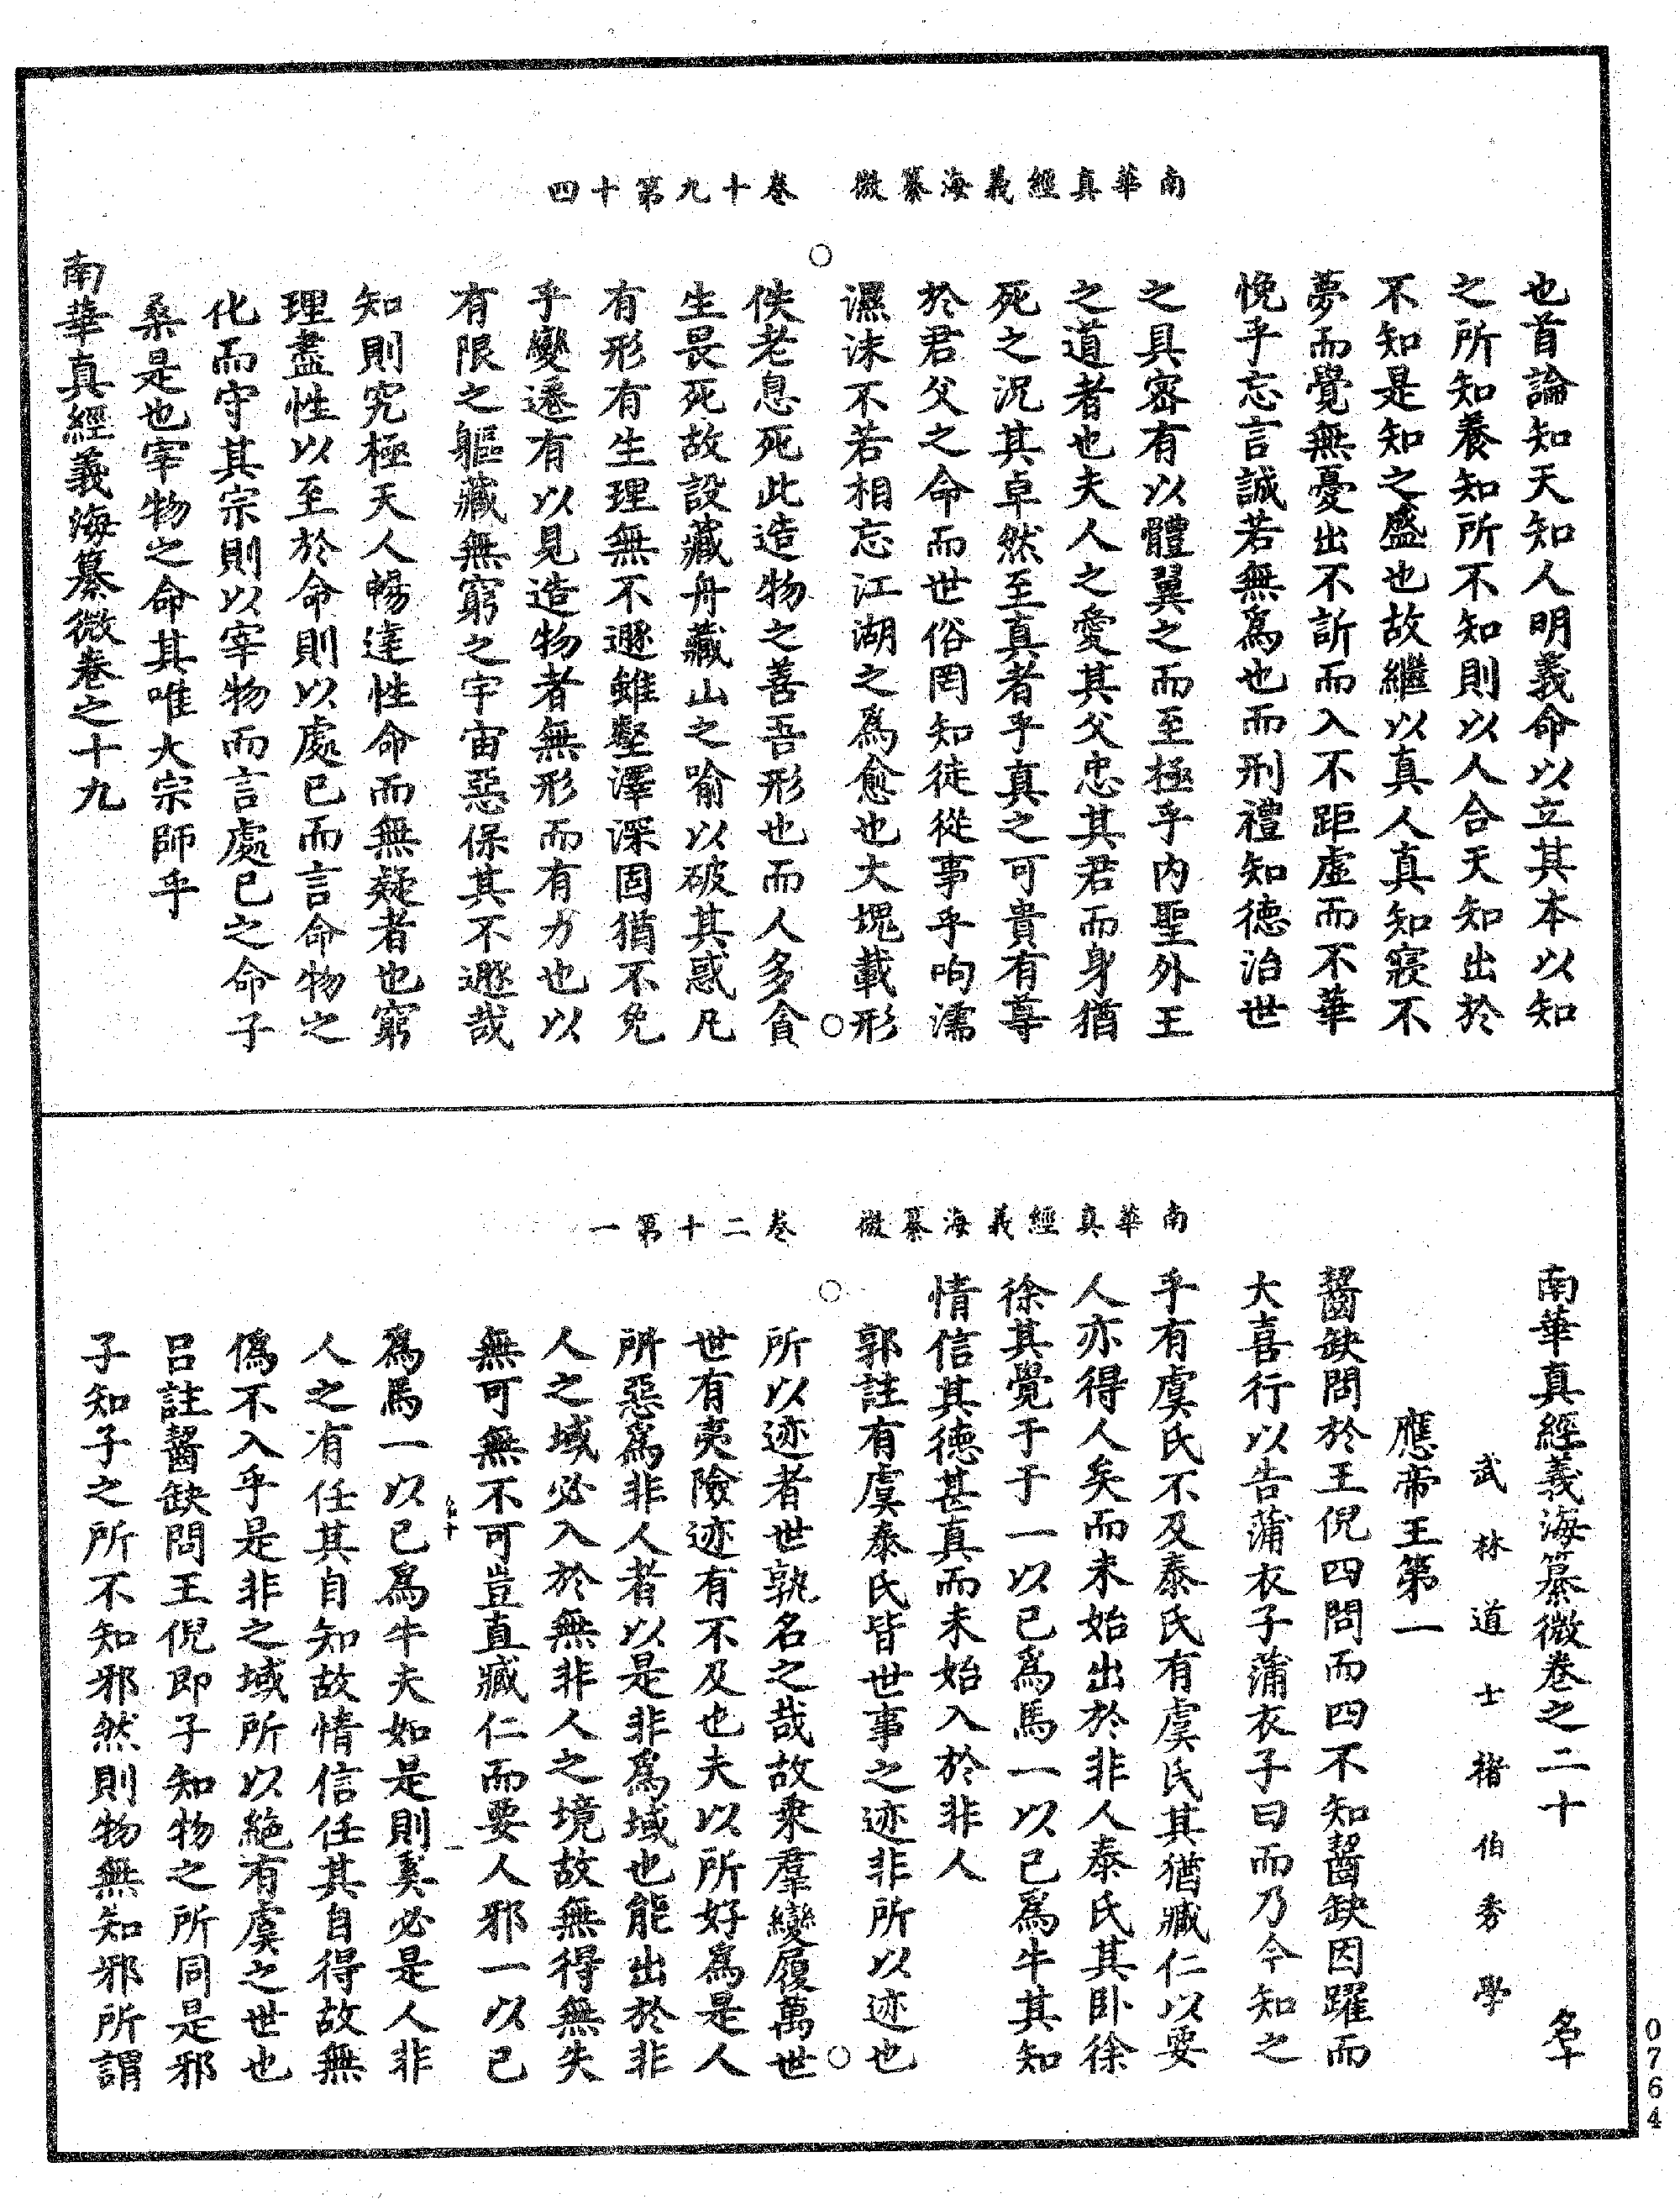 南華真經義海纂微　卷十九第十四
也首論知天知人明義命以立其本以知
之所知養知所不知則以人合天知出於
不知是知之盛也故繼以真人真知寢不
夢而覺無憂出不訢而入不距虛而不華
悗乎忘言誠若無為也而刑禮知德治世
之具密有以體翼之而至極乎內聖外王
之道者也夫人之愛其父忠其君而身猶
死之況其卓然至真者乎真之可貴有尊
於君父之命而世俗罔知徒從事乎呴濡
濕沫不若相忘江湖之為愈也大塊載形
佚老息死此造物之善吾形也而人多貪
生畏死故設藏舟藏山之喻以破其惑凡
有形有生理無不遯雖壑澤深固猶不免
乎變遷有以見造物者無形而有力也以
有限之軀藏無窮之宇宙惡保其不遯哉
知則究極天人暢達性命而無疑者也窮
理盡性以至於命則以處已而言命物之
化而守其宗則以宰物而言處已之命子
桑是也宰物之命其唯大宗師乎
南華真經義海纂微卷之十九
南華真經義海纂微　卷二十第一
南華真經義海纂微卷之二十　名十
武林道士褚伯秀學
應帝王第一
齧缺問於王倪四問而四不知齧缺因躍而
大喜行以告蒲衣子蒲衣子曰而乃今知之
乎有虞氏不及泰氏有虞氏其猶臧仁以要
人亦得人矣而未始出於非人泰氏其臥徐
徐其覺于于一以已為馬一以已為牛其知
情信其德甚真而未始入於非人
郭註有虞泰氏皆世事之迹非所以迹也
所以迹者世孰名之哉故乘羣變履萬世
世有夷險迹有不及也夫以所好為是人
所惡為非人者以是非為域也能出於非
人之域必入於無非人之境故無得無失
無可無不可豈直臧仁而要人邪一以已
為馬一以已為牛夫如是則奚必是人非
人之有任其自知故情信任其自得故無
偽不入乎是非之域所以絕有虞之世也
呂註齧缺問王倪即子知物之所同是邪
子知子之所不知邪然則物無知邪所謂
0764